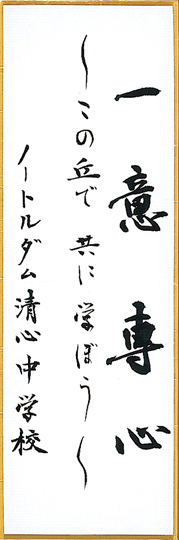 一意専心
～この丘で 共に学ぼう～
ノートルダム清心中学校